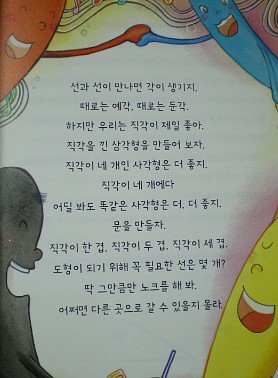 선과 선이 만나면 각이 생기지.
때로는 예각, 때로는 둔각.
하지만 우리는 직각이 제일 좋아.
직각을 낀 삼각형을 만들어 보자.
직각이 네 개인 사각형은 더 좋지.
직각이 네 개에다
어딜 봐도 똑같은 사각형은 더, 더 좋지.
문을 만들자.
직각이 한 겹, 직각이 두 겹, 직각이 세 겹.
도형이 되기 위해 꼭 필요한 선은 몇 개?
딱 그만큼만 노크를 해 봐.
어쩌면 다른 곳으로 갈 수 있을지 몰라.